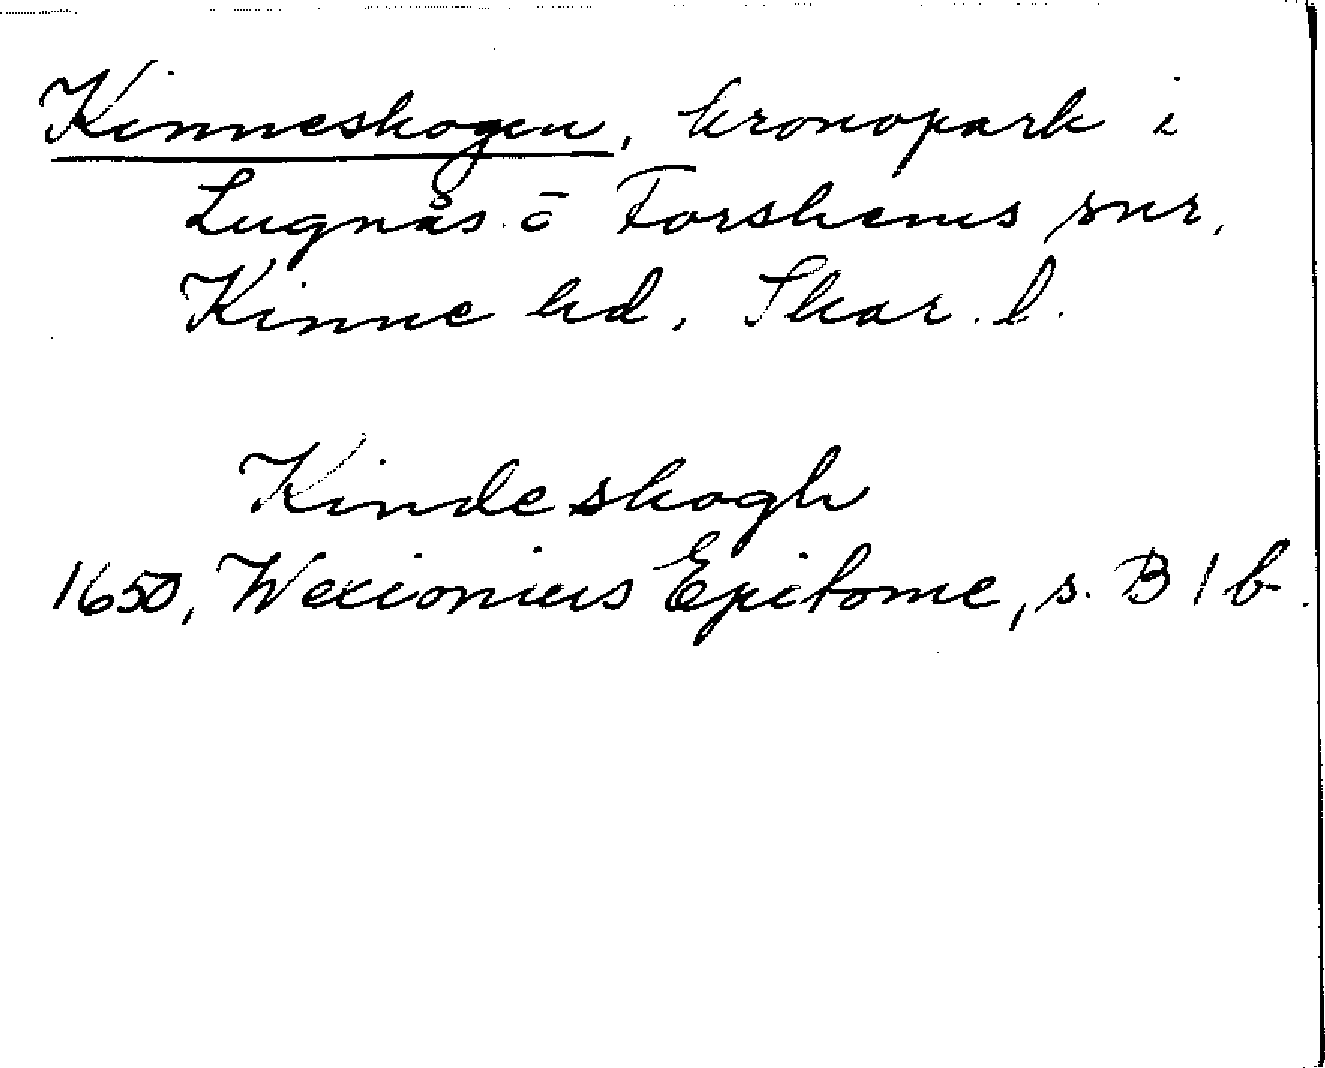 Kinneskogen, kronopark i
Lugnås o Forshems snr,
Kinne hd, Skar. l.
Kindeskogh
1650, Wexionius Epitome, s. B 1 b.